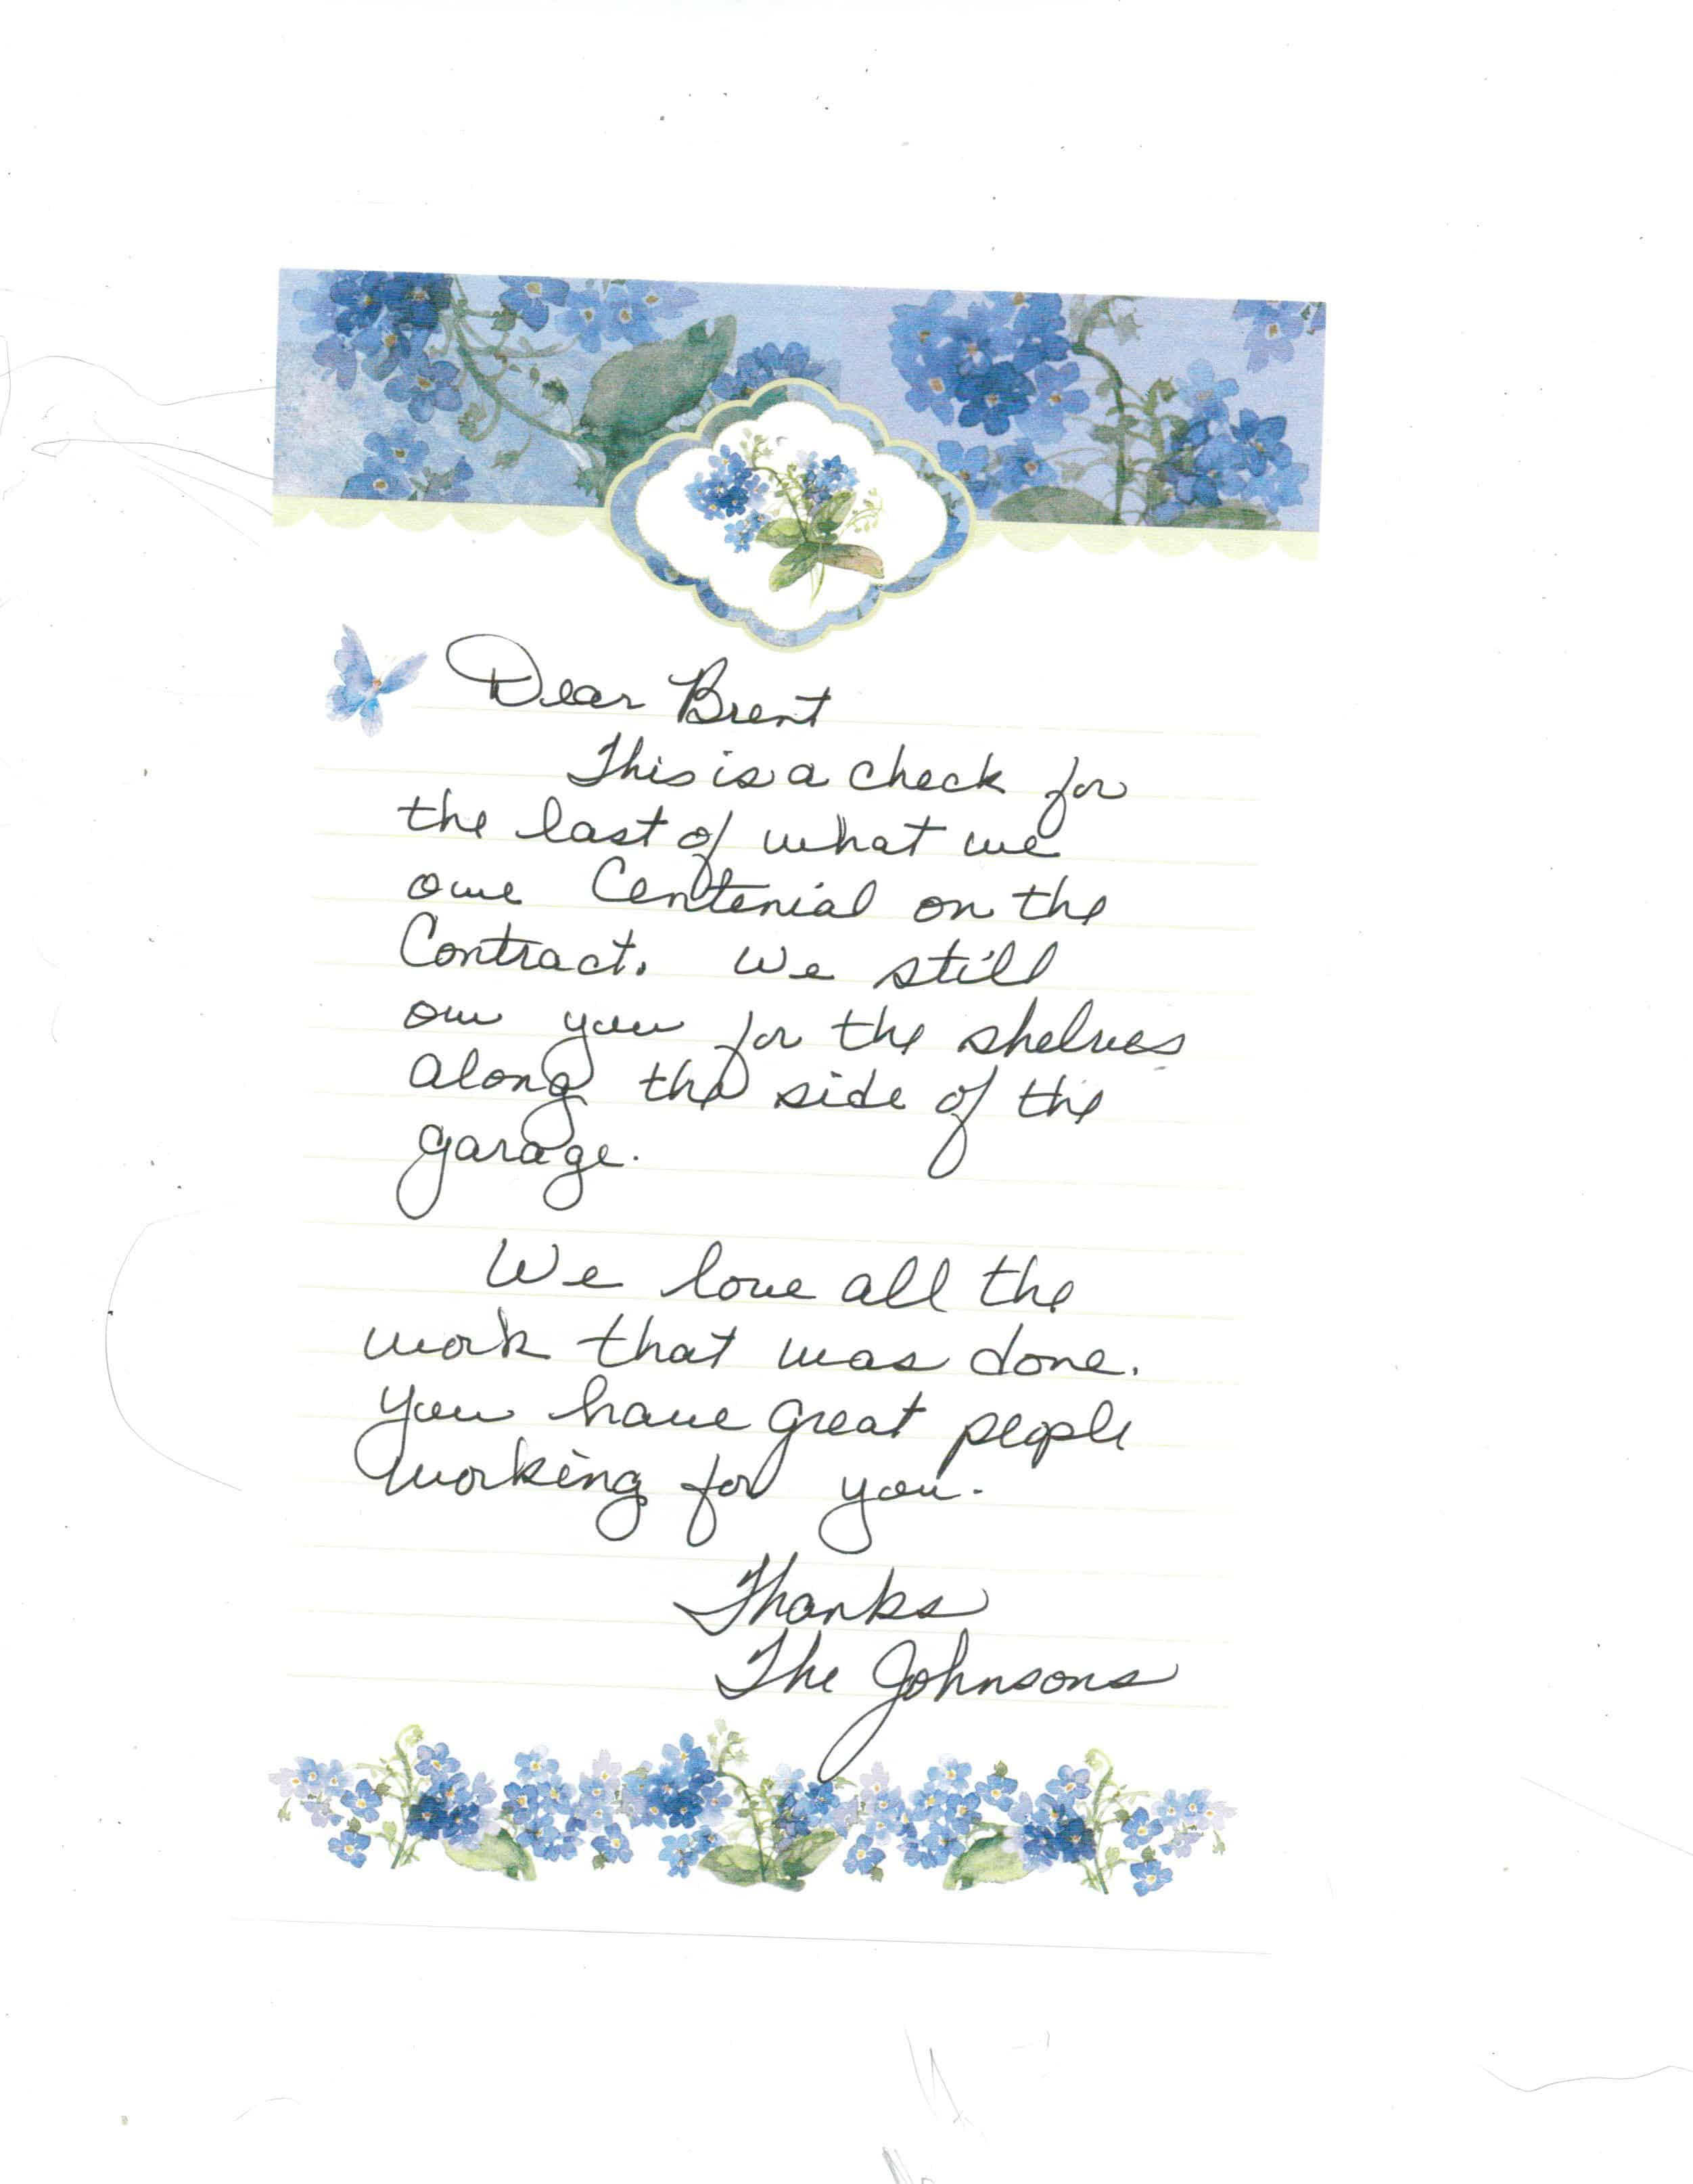 Dear Brent
This is a check for
the last of what we
owe Centenial on the
Contract. We still
ow you for the shelves
along the side of the
garage.
We love all the
work that was done.
You have great people
working for you.
Thanks
The Johnsons